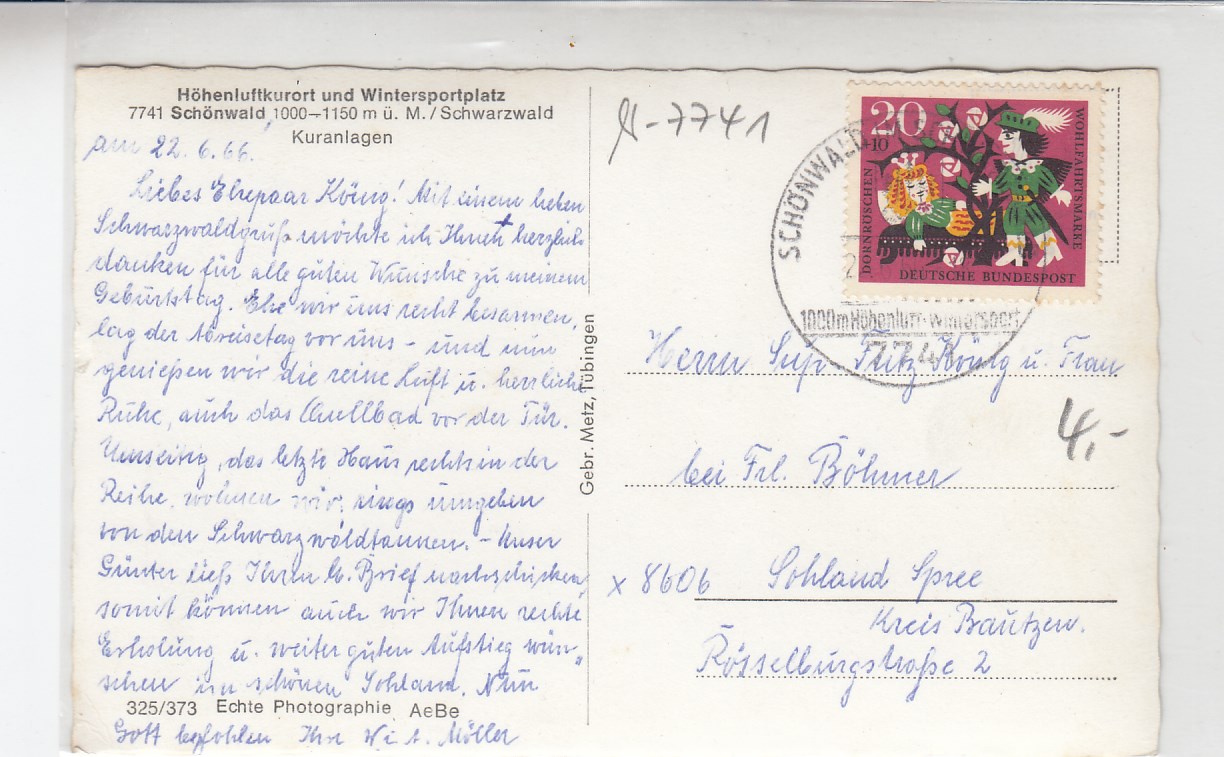 Höhenluftkurort und Wintersportplatz
7741 Schönwald 1000–1150 m ü. M. / Schwarzwald
Kuranlagen
am 22. 6. 66.
Liebes Ehepaar König! Mit einem lieben
Schwarzwaldgruß möchte ich Ihnen herzlich
danken für alle guten Wünsche zu meinem
Geburtstag. Ehe wir uns recht besannen,
lag der Abreisetag vor uns – und nun
genießen wir die reine Luft u. herrliche
Ruhe, auch das Quellbad vor der Tür.
Umseitig, das letzte Haus rechts in der
Reihe, wohnen wir, rings umgeben
von den Schwarzwaldtannen. – Unser
Günter ließ Ihren lb. Brief nachschicken,
somit können auch wir Ihnen rechte
Erholung u. weiter guten Aufstieg wün„
schen im schönen Sohland. Nun
325/373 Echte Photographie AeBe
Gott befohlen Ihre W. Möller
Gebr. Metz, Tübingen
-7741
20
+10
DORNRÖSCHEN
WOHLFAHRTSMARKE
DEUTSCHE BUNDESPOST
SCHÖNWALD
1000m Höhenluft-Wintersport
7741
Herrn Sup. Fritz König u. Frau
4,-
bei Frl. Böhmer
x 8606 Sohland Spree
Kreis Bautzen.
Rösselburgstraße 2